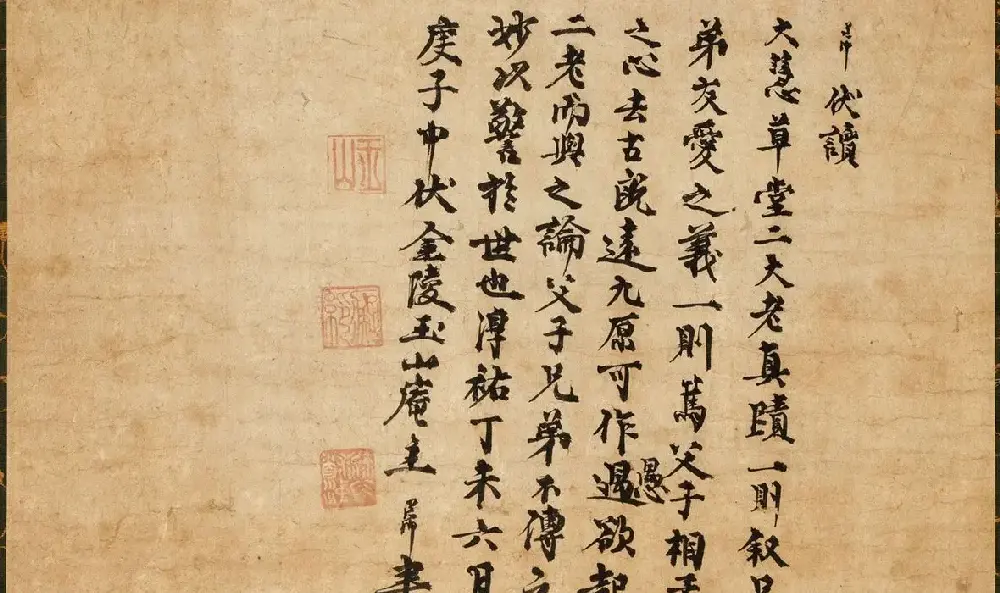 伏讀
大慧草堂二大老真蹟一則叙兄
弟友愛之義一則篤父子相
之心去古既遠九原可作愚欲起
二老而與之論父子兄弟不傳之
妙以警於世也淳祐丁未六月
庚子中伏金陵玉山庵主
書
玉山